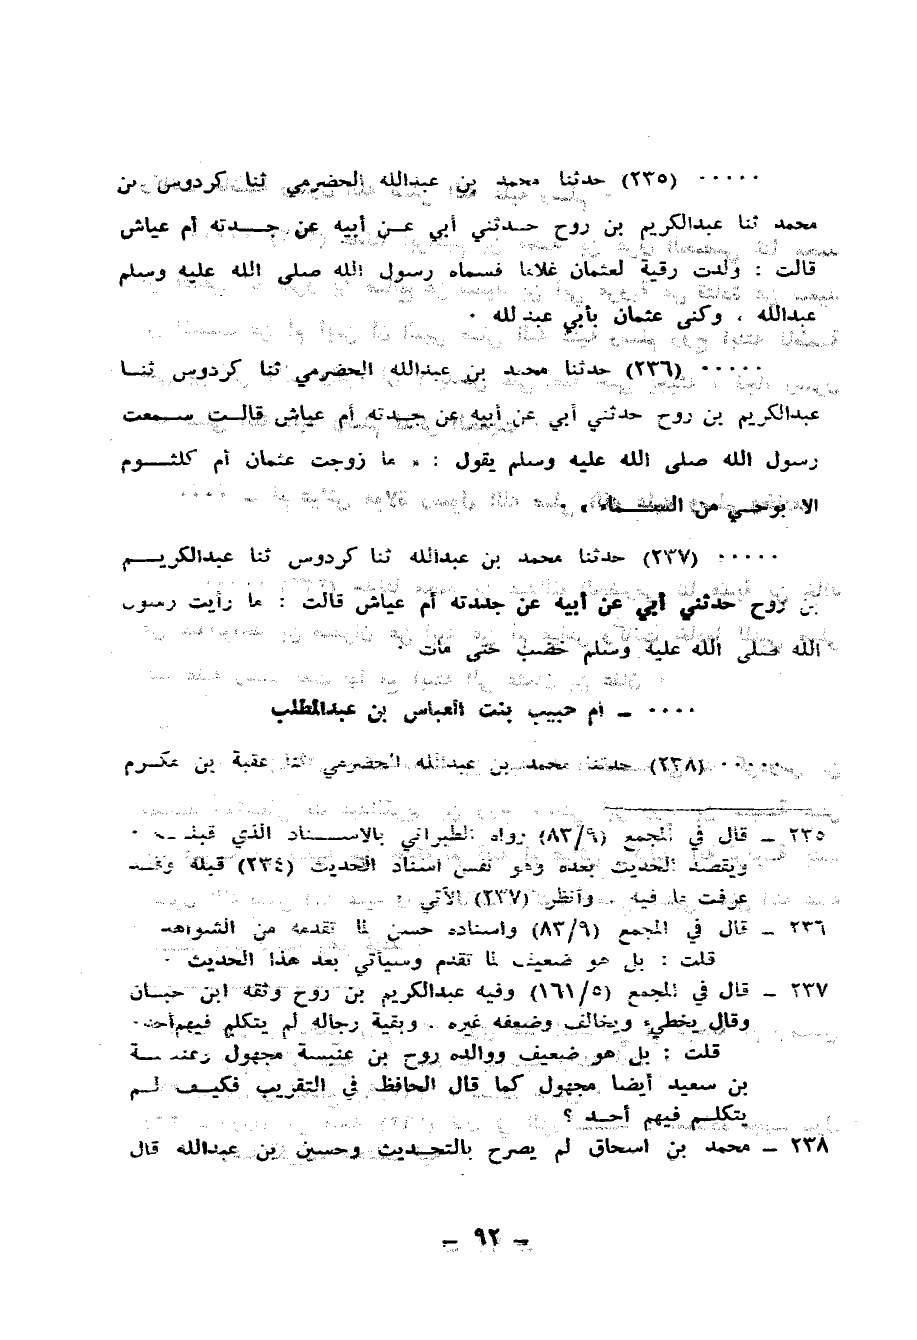 ٠٠٠٠٠ (٢٣٥) حدثنا محمد بن عبدالله الحضرمي ثنا كردوس بن
محمد ثنا عبدالكريم بن روح حدثني أبي عن أبيه عن جدته أم عياش
قالت : ولدت رقية لعثمان غلاما فسماه رسول الله صلى الله عليه وسلم
عبدالله ، وكنى عثمان بأبي عبدلله ٠
٠٠٠٠٠ (٢٣٦) حدثنا محمد بن عبدالله الحضرمي ثنا كردوس ثنا
عبدالكريم بن روح حدثني أبي عن أبيه عن جدته أم عياش قالت سمعت
رسول الله صلى الله عليه وسلم يقول : « ما زوجت عثمان أم كلثوم
الا بوحي من السماء » ٠
٠٠٠٠٠ (٢٣٧) حدثنا محمد بن عبدالله ثنا كردوس ثنا عبدالكريم
بن روح حدثني أبي عن أبيه عن جدته أم عياش قالت : ما رأيت رسول
الله صلى الله عليه وسلم خضب حتى مات ٠
٠٠٠٠ ــ أم حبيب بنت العباس بن عبدالمطلب
٠٠٠٠٠ (٢٣٨) حدثنا محمد بن عبدالله الحضرمي ثنا عقبة بن مكرم
٢٣٥ ــ قال في المجمع (٨٣/٩) رواه الطبراني بالاسناد الذي قبله ٠
ويقصد الحديث بعده وهو نفس اسناد الحديث (٢٣٤) قبله وقد
عرفت ما فيه وانظر (٢٣٧) الآتي
٢٣٦ ــ قال في المجمع (٨٣/٩) واسناده حسن لما تقدمه من الشواهد
قلت : بل هو ضعيف لما تقدم وسيأتي بعد هذا الحديث ٠
٢٣٧ ــ قال في المجمع (١٦١/٥) وفيه عبدالكريم بن روح وثقه ابن حبان
وقال يخطيء ويخالف وضعفه غيره . وبقية رجاله لم يتكلم فيهم أحد ٠
قلت : بل هو ضعيف ووالده روح بن عنبسة مجهول وعنبسة
بن سعيد أيضا مجهول كما قال الحافظ في التقريب فكيف لم
يتكلم فيهم أحد ؟
٢٣٨ ــ محمد بن اسحاق لم يصرح بالتحديث وحسين بن عبدالله قال
ــ ٩٢ ــ